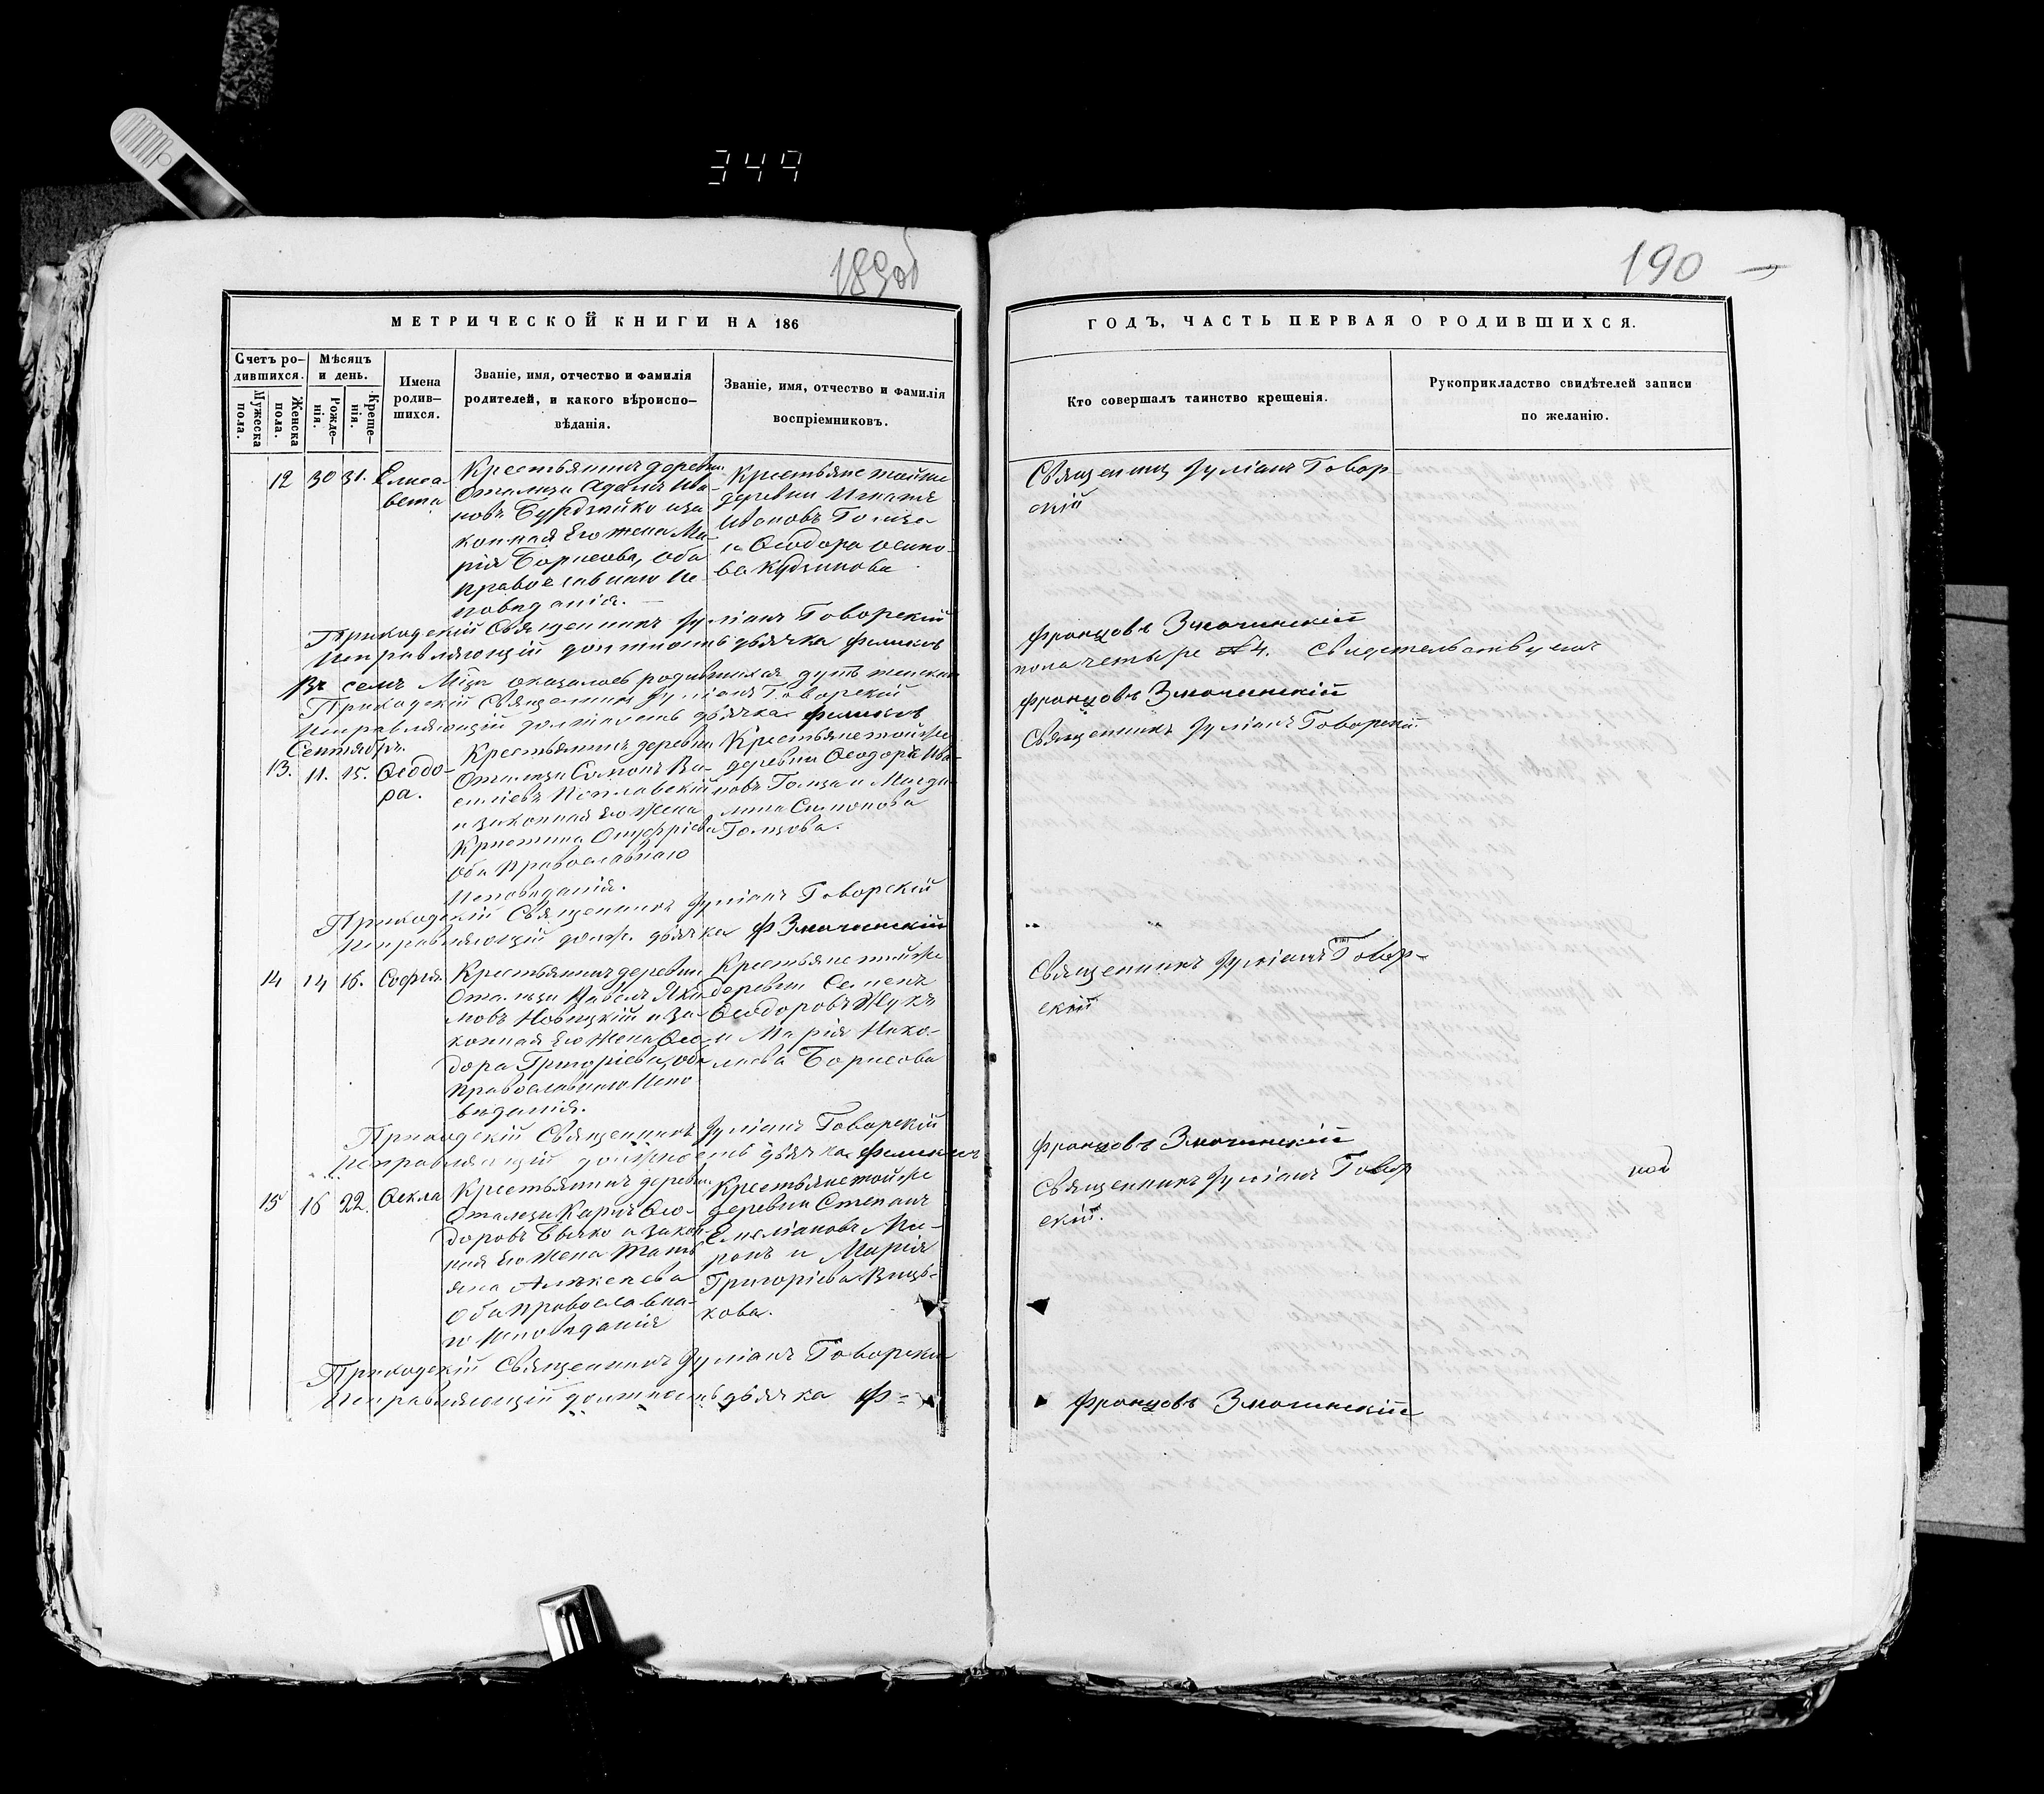 349
189об
190
МЕТРИЧЕСКОЙ КНИГИ НА 186
ГОДЪ, ЧАСТЬ ПЕРВАЯ О РОДИВШИХСЯ.
Счетъ ро-
дившихся.
Мужеска
пола.
Женска
пола.
Мѣсяцъ
и день.
Рожде-
нія.
Креще-
нія.
Имена
родив-
шихся.
Званіе, имя, отчество и фамилія
родителей, и какого вѣроиспо-
вѣданія.
Званіе, имя, отчество и фамилія
воспріемниковъ.
Кто совершалъ таинство крещенія.
Рукоприкладство свидѣтелей записи
по желанію.
12 30 31. Елиса-
вета
Крестьянинъ деревни
Адамъ Ива-
новъ и за
конная его жена Ма-
рія Борисова, оба
православнаго Ис-
повѣданія.
Крестьяне тойже
деревни Игнатій
Ивановъ
и Ѳеодора Осипо-
ва
Священникъ Іуліанъ Говор-
скій
Приходскій Священникъ Іуліанъ Говорскій
Исправляющій должность дьячка Феликсъ
Францовъ Змачинскій
Въ семъ Мцѣ оказалось родившихся душъ женска
пола четыре № 4. Свидетельствуемъ
Приходскій Священникъ Іуліанъ Говорскій
Исправляющій должность дьячка Феликсъ
Францовъ Змачинскій
Сентябрь.
13. 11. 15. Ѳеодо-
ра.
Крестьянинъ деревни
Симонъ Ва-
силіевъ
и законная его жена
Кристина Онуфріева
Оба Православнаго
Исповѣданія.
Крестьяне тойже
деревни Ѳеодоръ Ива-
новъ и Магда-
лина Симонова
Священникъ Іуліанъ Говорскій.
Приходскій Священникъ Іуліанъ Говорскій
Исправляющій долж. дьячка Ф Змачинскій
14 14 16. Софія
Крестьянинъ деревни
Павелъ Яки-
мовъ Новицкій и За-
конная его жена Ѳео-
дора Григоріева, оба
Православнаго Испо
вѣданія.
Крестьяне тойже
деревни Семенъ
Ѳеодоровъ Жукъ
и Марія Нико-
лаева Борисова
Священникъ Іуліанъ Говор-
скій
Приходскій Священникъ Іуліанъ Говорскій
Исправляющій должность дьячка Феликсъ
Францовъ Змачинскій
15 16 22. Ѳекла
Крестьянинъ деревни
Карпъ Ѳео-
доровъ и закон-
ная его жена Тать
яна Алексеева
Оба православна-
го исповѣданія
Крестьяне тойже
деревни Степанъ
Емеліановъ Ми-
ронъ и Марія
Григоріева
кова.
Священникъ Іуліанъ Говор
скій.
Приходскій Священникъ Іуліанъ Говорскій
Исправляющій должность дьячка Ф=
Францовъ Змачинскій